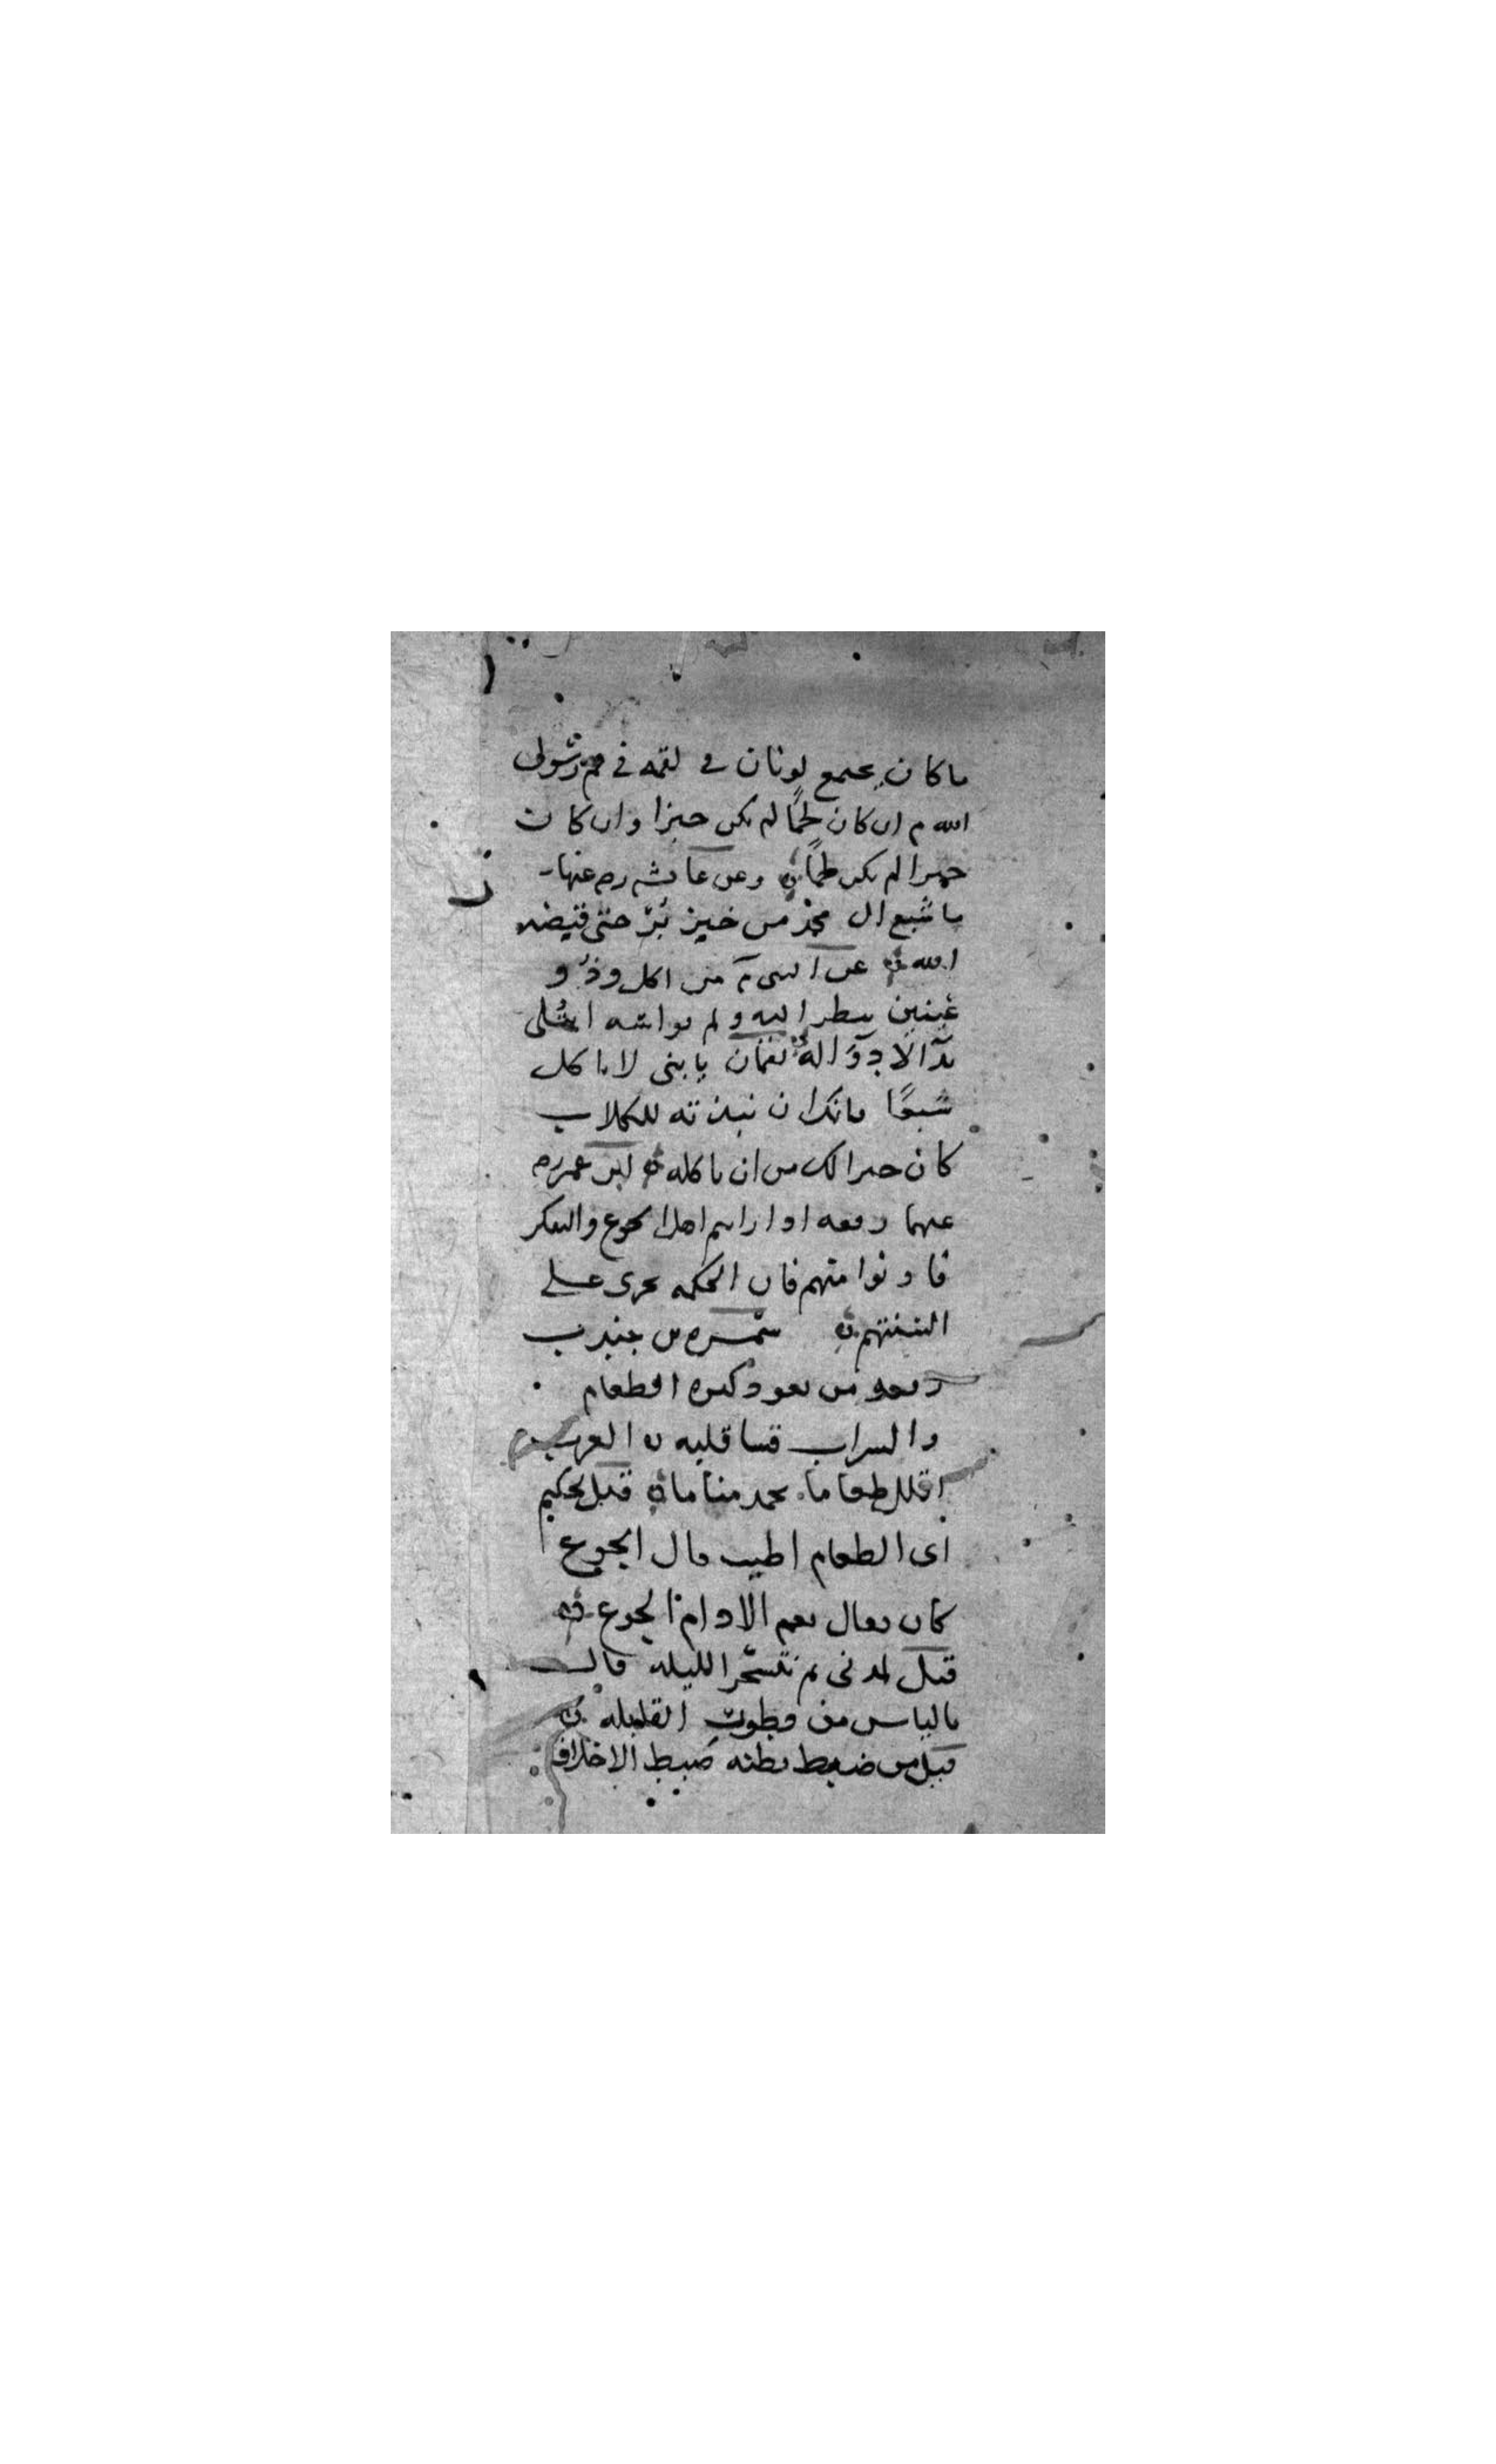 ما كان يجتمع لونان في لقمة في فم رسول
الله م ان كان لحمًا لم يكن خبزا وان كان
خبزا لم يكن لحمًا وعن عائشه رض عنها
ما شبع ال محمد من خبز بُرّ حتى قبضه
الله عن النبي م من اكل وذو
عينين ينظر اليه ولم يواسه ابتُلي
بدآ لا دوآ له لقمان يا بني لا تاكل
شبعًا فانك ان نبذته للكلاب
كان خيرا لك من ان تاكله ابن عمر رض
عنهما رفعه اذا رايتم اهل الجوع والتفكر
فادنوا منهم فان الحكمه تجرى على
السنتهم سمره بن جندب
رفعه من تعود كثرة الطعام
والشراب قسا قلبه العرب
اقلل طعاما تحمد مناما قيل لحكيم
اى الطعام اطيب قال الجوع
كان يقال نعم الادام الجوع
قيل لمدنى بم تتسحر الليله قال
بالياس من فطور القابله
قيل من ضبط بطنه ضبط الاخلاق